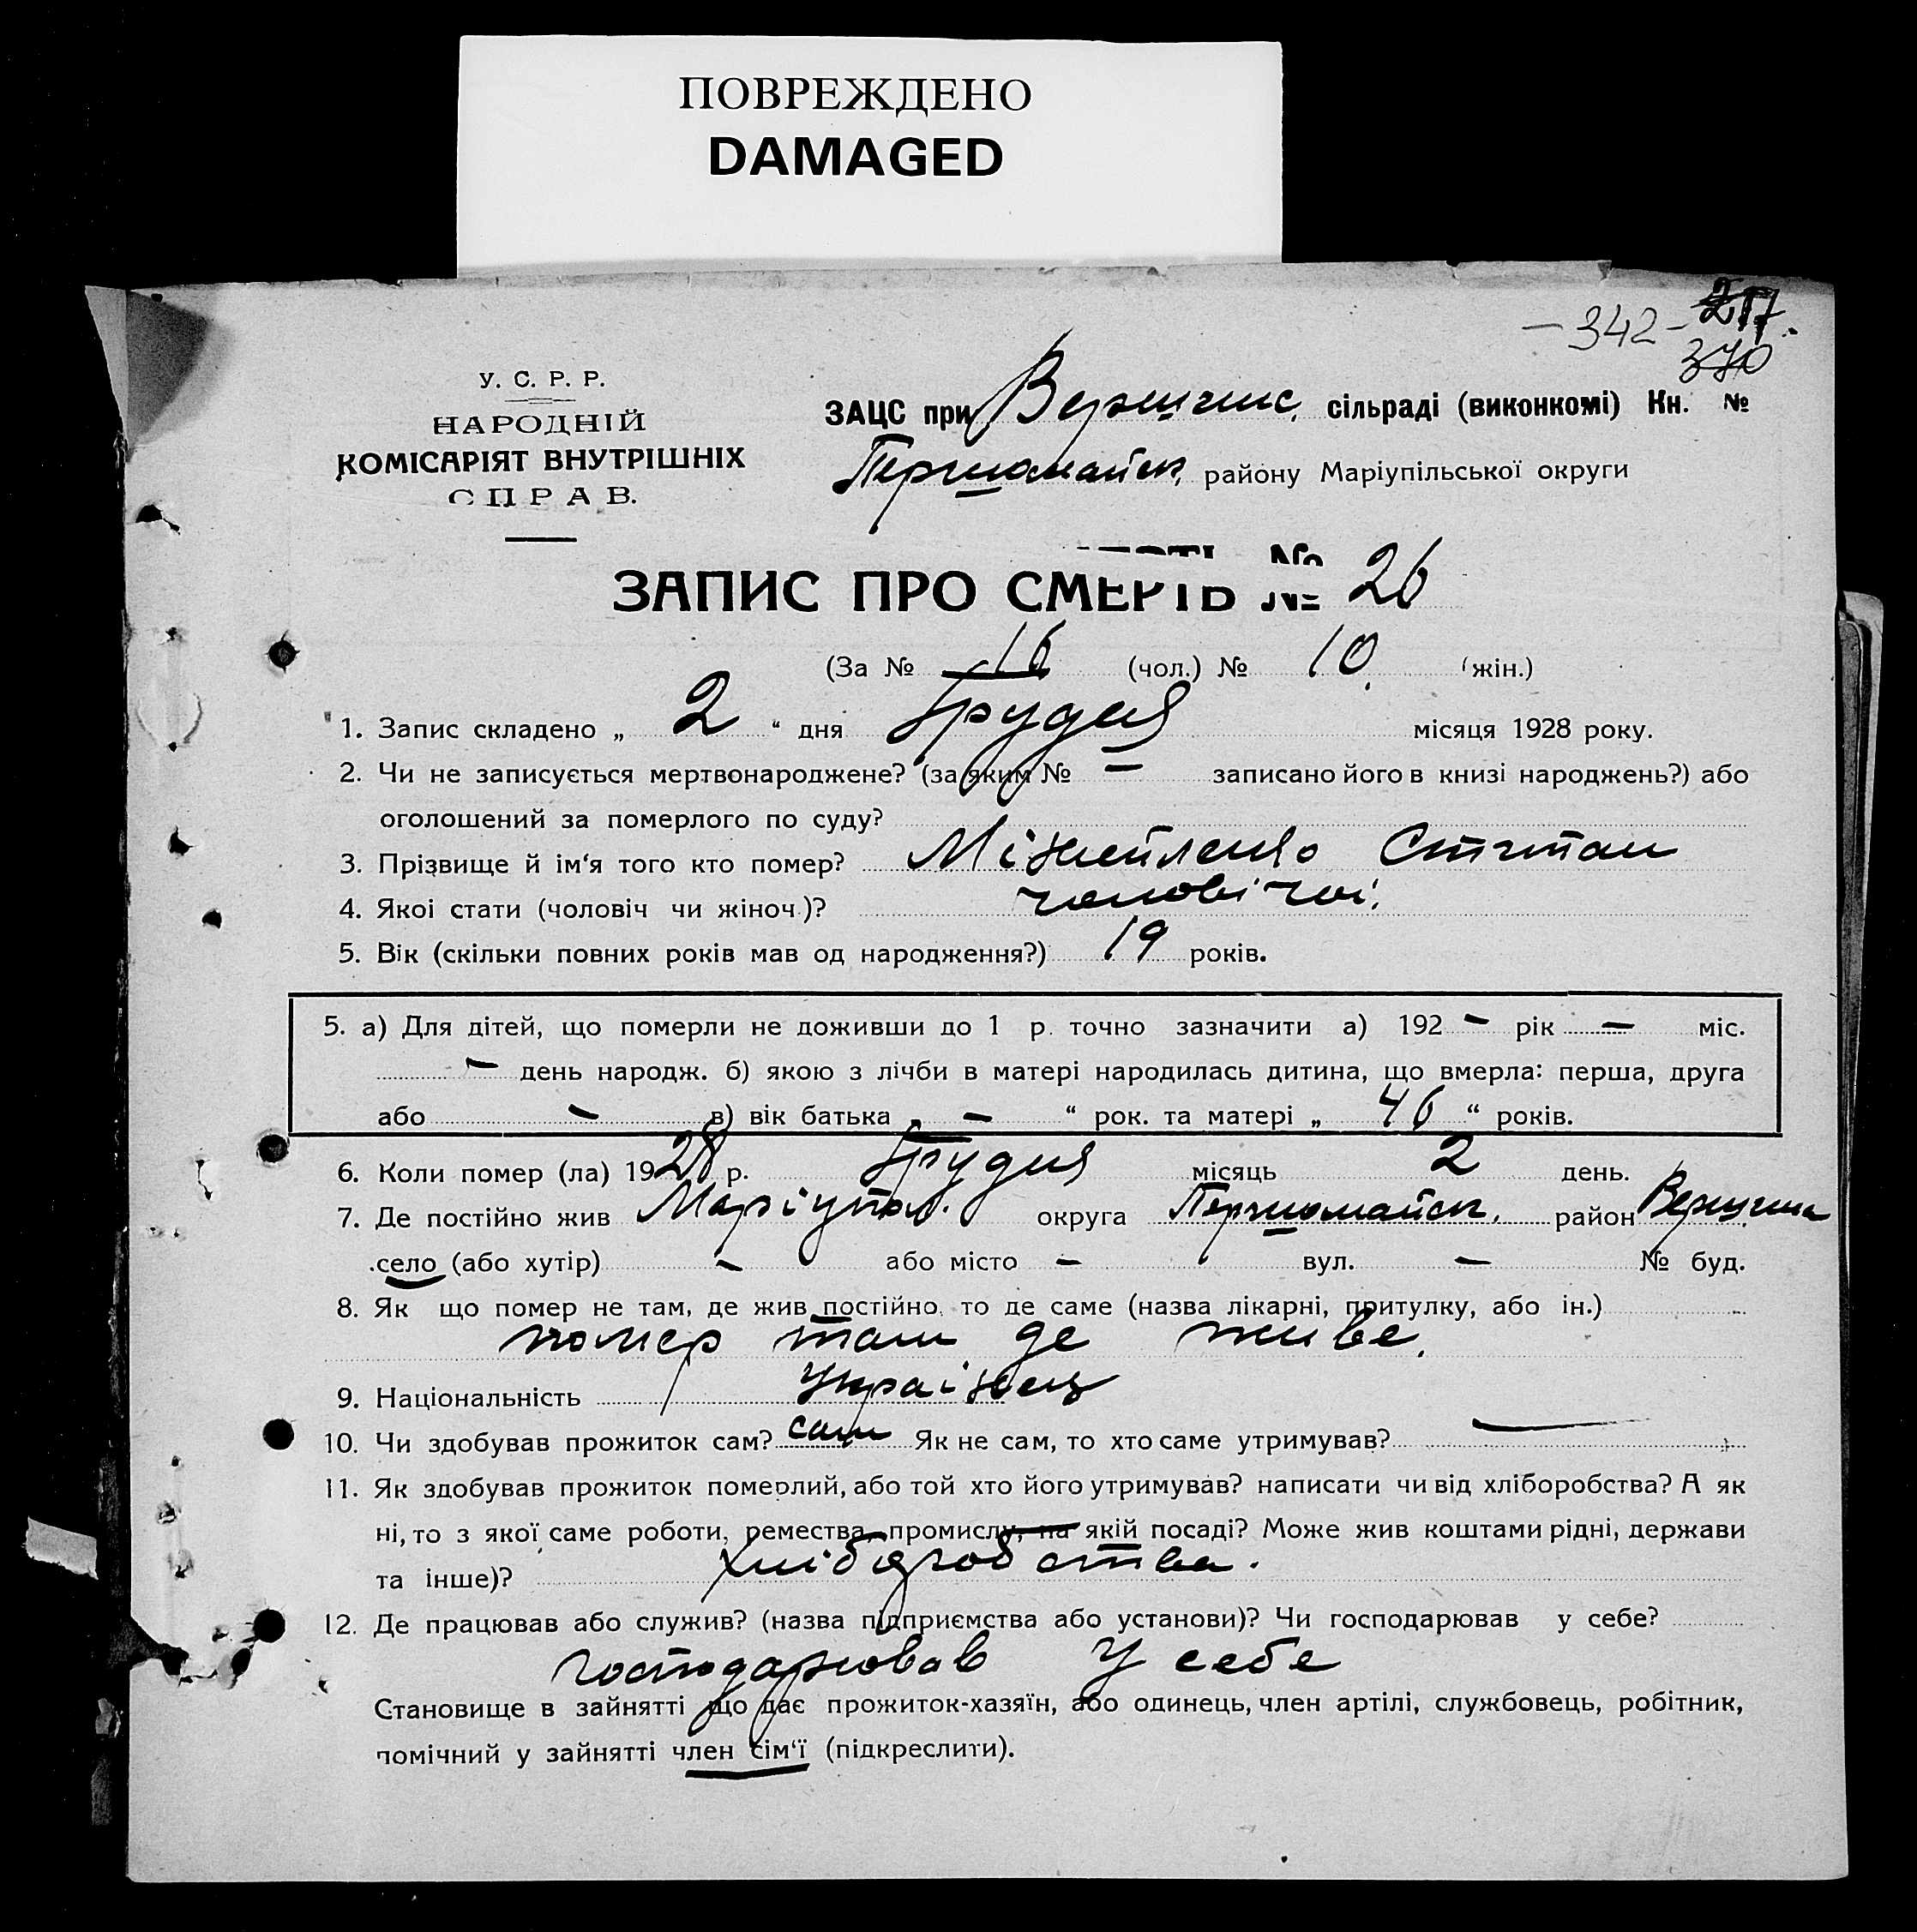 ПОВРЕЖДЕНО
DAMAGED
— 342 — 217.
370
У. С. Р. Р.
НАРОДНІЙ
КОМІСАРІЯТ ВНУТРІШНІХ
СПРАВ.
ЗАЦС при сільраді (виконкомі) Кн. №
Першомайськ. району Маріупільської округи
ЗАПИС ПРО СМЕРТЬ № 26
(За № 16 (чол.) № 10. (жін.)
1. Запис складено „ 2 “ дня Грудня місяця 1928 року.
2. Чи не записується мертвонароджене? (за яким № — записано його в книзі народжень?) або
оголошений за померлого по суду?
3. Прізвище й ім‘я того кто помер? Степан
4. Якоі стати (чоловіч чи жіноч.)? чоловічоі.
5. Вік (скільки повних років мав од народження?) 19 років.
5. а) Для дітей, що померли не доживши до 1 р. точно зазначити а) 192 — рік — міс.
— день народж. б) якою з лічби в матері народилась дитина, що вмерла: перша, друга
або — в) вік батька „ — “ рок. та матері „ 46 “ років.
6. Коли помер (ла) 1928 р. Грудня місяць 2 день.
7. Де постійно жив Маріупол. округа Першомайськ. район
село (або хутір) — або місто — вул. — № буд.
8. Як що помер не там, де жив постійно, то де саме (назва лікарні, притулку, або ін.)
помер там де живе.
9. Національність Украінець
10. Чи здобував прожиток сам? сам Як не сам, то хто саме утримував? —
11. Як здобував прожиток померлий, або той хто його утримував? написати чи від хліборобства? А як
ні, то з якої саме роботи, ремества, промислу, на якій посаді? Може жив коштами рідні, держави
та інше)? хліборобства.
12. Де працював або служив? (назва підприємства або установи)? Чи господарював у себе?
господарював у себе
Становище в зайнятті що дає прожиток-хазяїн, або одинець, член артілі, службовець, робітник,
помічний у зайнятті член сім‘ї (підкреслити).